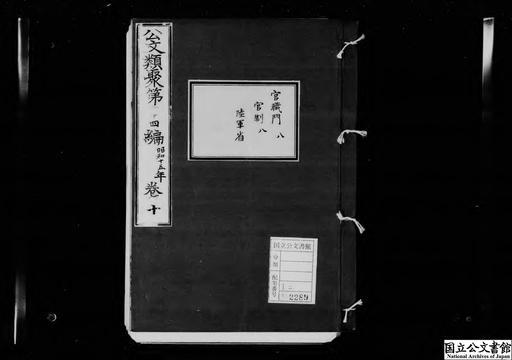 公文類聚第
四編
昭和十五年
卷十
官職門 八
官制 八
陸軍省
国立公文書館
分類
配架番号
2289
国立公文書館
National Archives of Japan